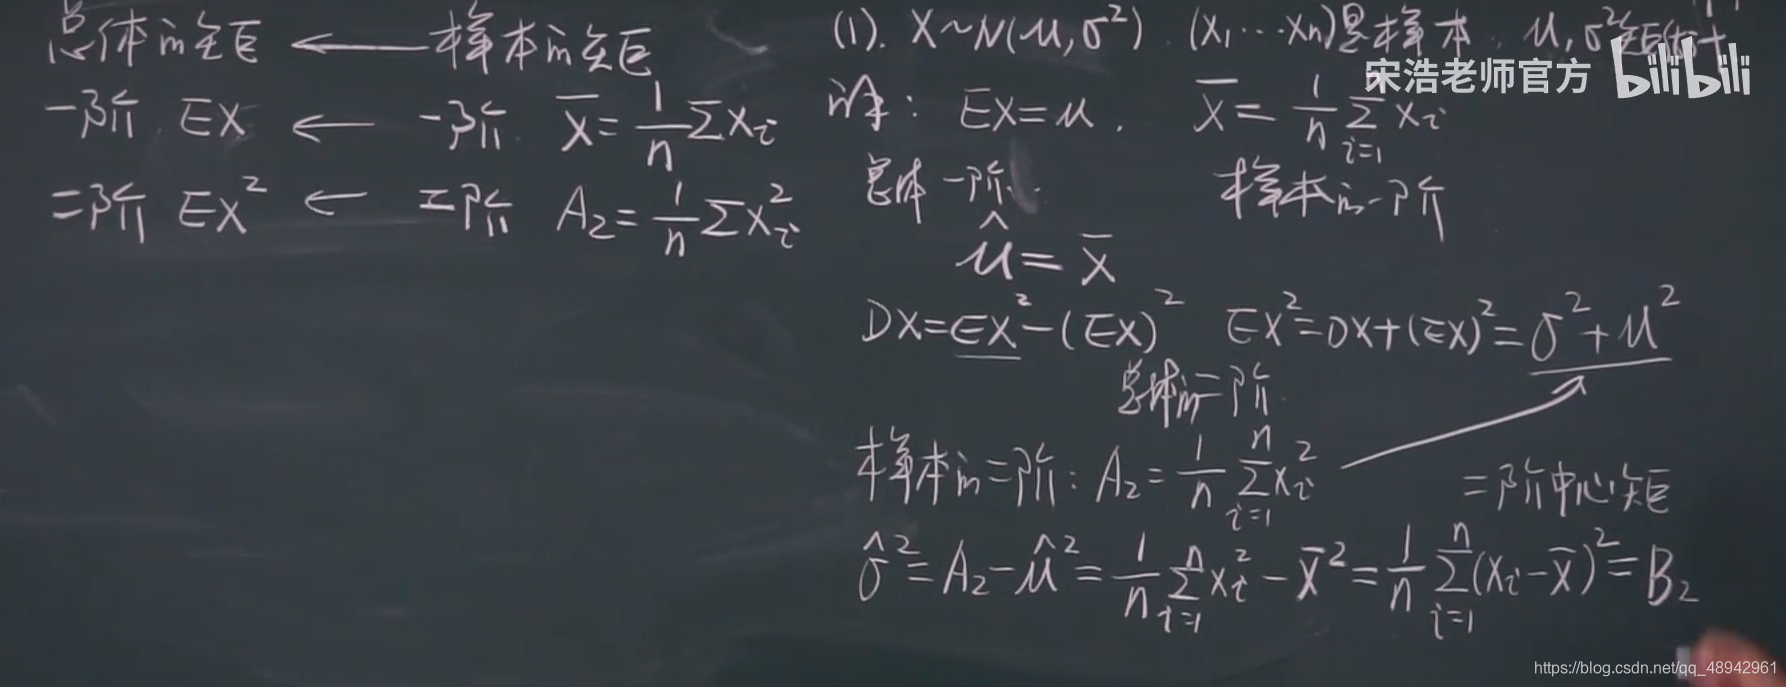 总体的矩 ← 样本的矩
一阶 EX ← 一阶 X̄=1/n ΣXᵢ
二阶 EX² ← 二阶 A₂=1/n ΣXᵢ²
(1). X~N(μ,σ²). (X₁…Xₙ)是样本. μ,σ²矩估计
宋浩老师官方 bilibili
解: EX=μ. X̄=1/n Σᵢ₌₁ Xᵢ
总体一阶. 样本的一阶
μ̂=X̄
DX=EX²-(EX)² EX²=DX+(EX)²=σ²+μ²
总体的二阶
样本的二阶: A₂=1/n Σᵢ₌₁ⁿ Xᵢ² 二阶中心矩
σ̂²=A₂-μ̂²=1/n Σᵢ₌₁ⁿ Xᵢ²-X̄²=1/n Σᵢ₌₁ⁿ (Xᵢ-X̄)²=B₂
https://blog.csdn.net/qq_48942961